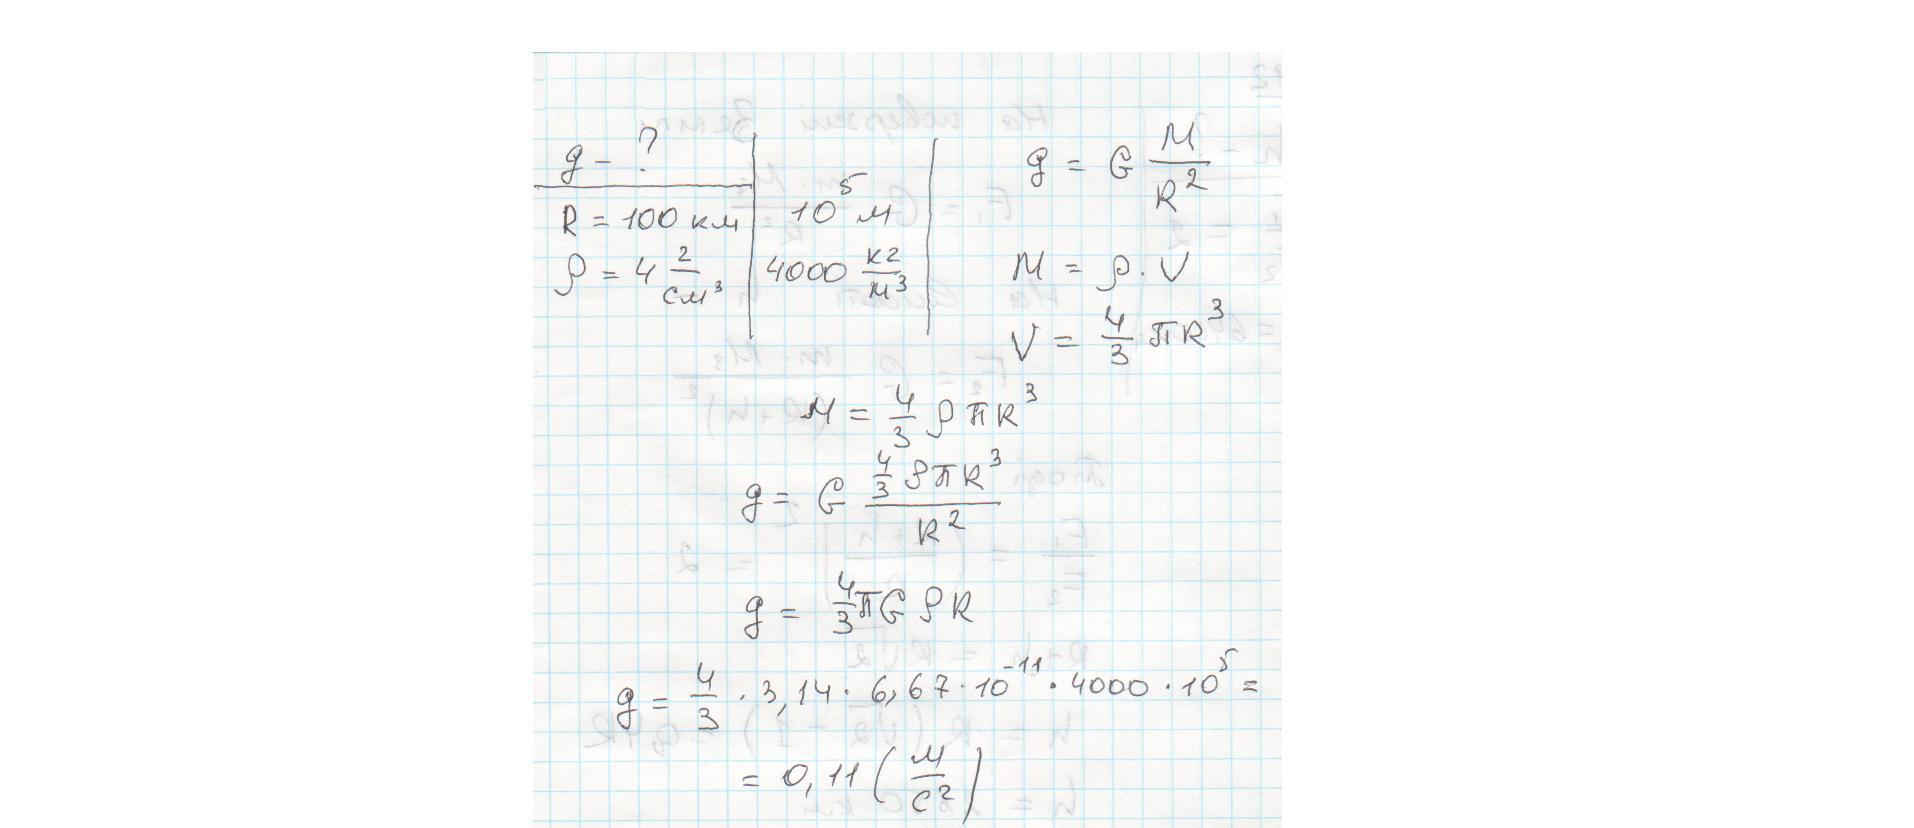 g - ?
R = 100 км | 10⁵ м
ρ = 4 г/см³ | 4000 кг/м³
g = G M/R²
M = ρ · V
V = 4/3 πR³
M = 4/3 ρπR³
g = G (4/3 ρπR³)/R²
g = 4/3 πGρR
g = 4/3 · 3,14 · 6,67 · 10⁻¹¹ · 4000 · 10⁵ =
= 0,11 (м/с²)